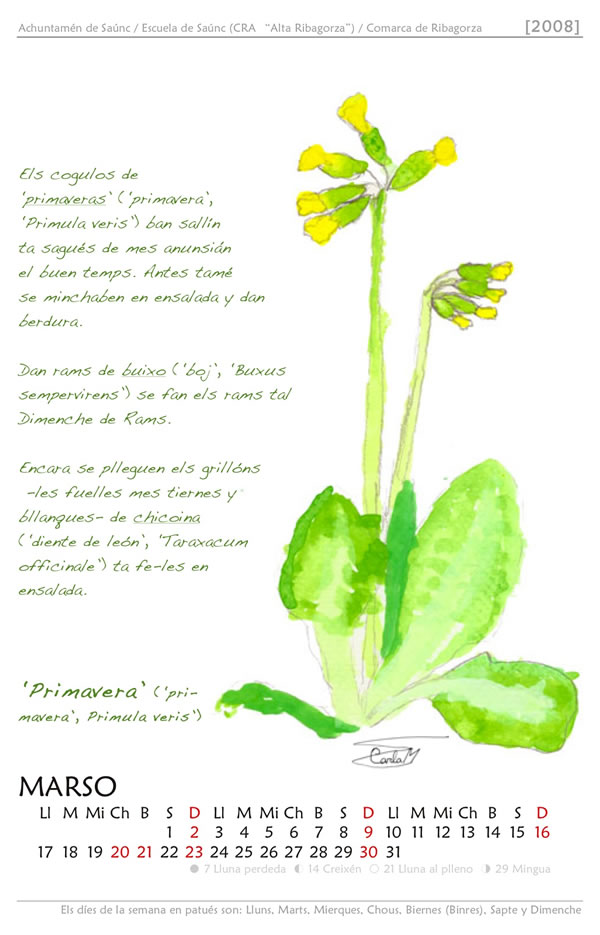 Achuntamén de Saúnc / Escuela de Saúnc (CRA “Alta Ribagorza”) / Comarca de Ribagorza [2008]
Els cogulos de
‘primaveras‘ (‘primavera‘,
‘Primula veris‘) ban sallín
ta sagués de mes anunsián
el buen temps. Antes tamé
se minchaben en ensalada y dan
berdura.
Dan rams de buixo (‘boj‘, ‘Buxus
sempervirens‘) se fan els rams tal
Dimenche de Rams.
Encara se plleguen els grillóns
-les fuelles mes tiernes y
bllanques- de chicoina
(‘diente de león‘, ‘Taraxacum
officinale‘) ta fe-les en
ensalada.
‘Primavera‘ (‘pri-
mavera‘, Primula veris‘)
Carla M
MARSO
Ll M Mi Ch B S D Ll M Mi Ch B S D Ll M Mi Ch B S D
1 2 3 4 5 6 7 8 9 10 11 12 13 14 15 16
17 18 19 20 21 22 23 24 25 26 27 28 29 30 31
7 Lluna perdeda 14 Creixén 21 Lluna al plleno 29 Mingua
Els díes de la semana en patués son: Lluns, Marts, Mierques, Chous, Biernes (Binres), Sapte y Dimenche